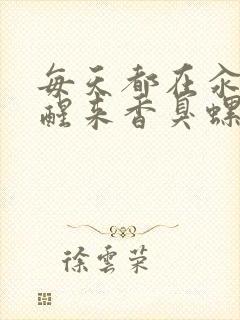 每天都在汆
醒来香臭螺
徐雲荣